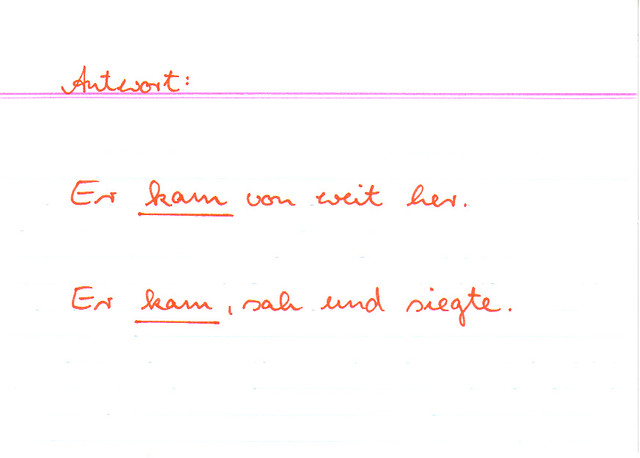 Antwort:
Er kam von weit her.
Er kam, sah und siegte.